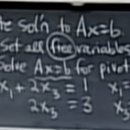 te sol'n to Ax=b.
Set all free variables
olve Ax=b for pivot
x₁ + 2x₃ = 1 x
2x₃ = 3 x₃